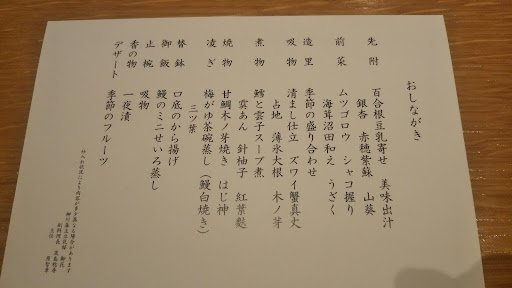 おしながき
先附 百合根豆乳寄せ 美味出汁
銀杏 赤穂紫蘇 山葵
前菜 ムツゴロウ シャコ握り
海茸沼田和え うざく
造里 季節の盛り合わせ
吸物 清まし仕立 ズワイ蟹真丈
占地 薄氷大根 木ノ芽
煮物 鱈と雲子スープ煮
雲あん 針柚子 紅葉麩
焼物 甘鯛木ノ芽焼き はじ神
凌ぎ 梅がゆ茶碗蒸し(鰻白焼き)
三ツ葉
替鉢 口底のから揚げ
御飯 鰻のミニせいろ蒸し
止椀 吸物
香の物 一夜漬
デザート 季節のフルーツ
仕入れ状況により内容が多少異なる場合があります